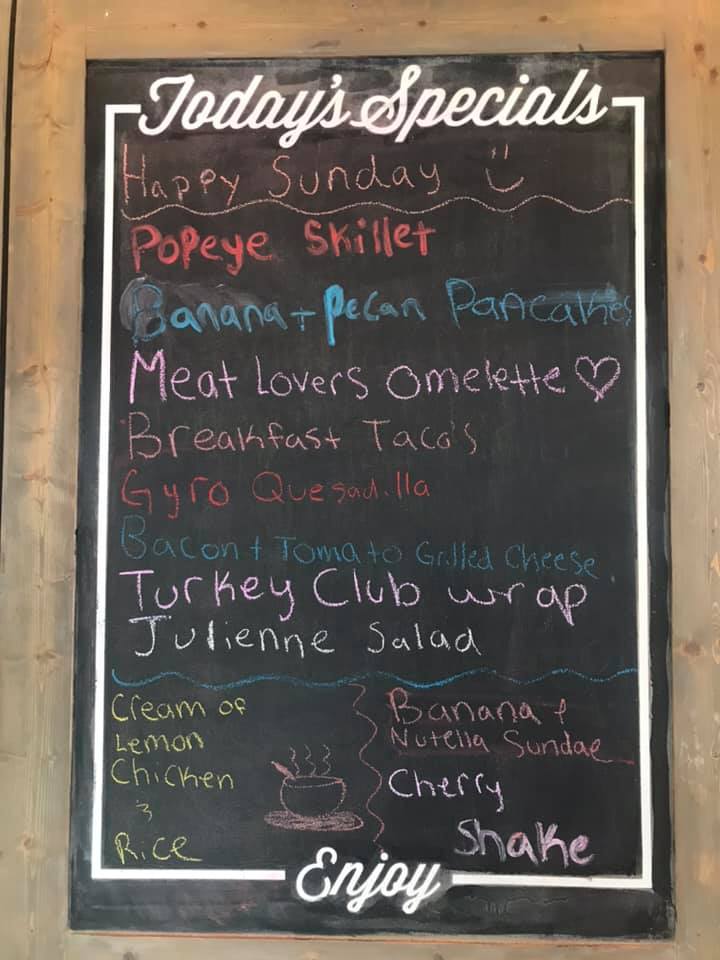 Today's Specials
Happy Sunday
Popeye Skillet
Banana + Pecan Pancakes
Meat Lovers Omelette ♡
Breakfast Taco's
Gyro Quesadilla
Bacon + Tomato Grilled Cheese
Turkey Club wrap
Julienne Salad
Cream of
Lemon
Chicken
&
Rice
Banana &
Nutella Sundae
Cherry
Shake
Enjoy